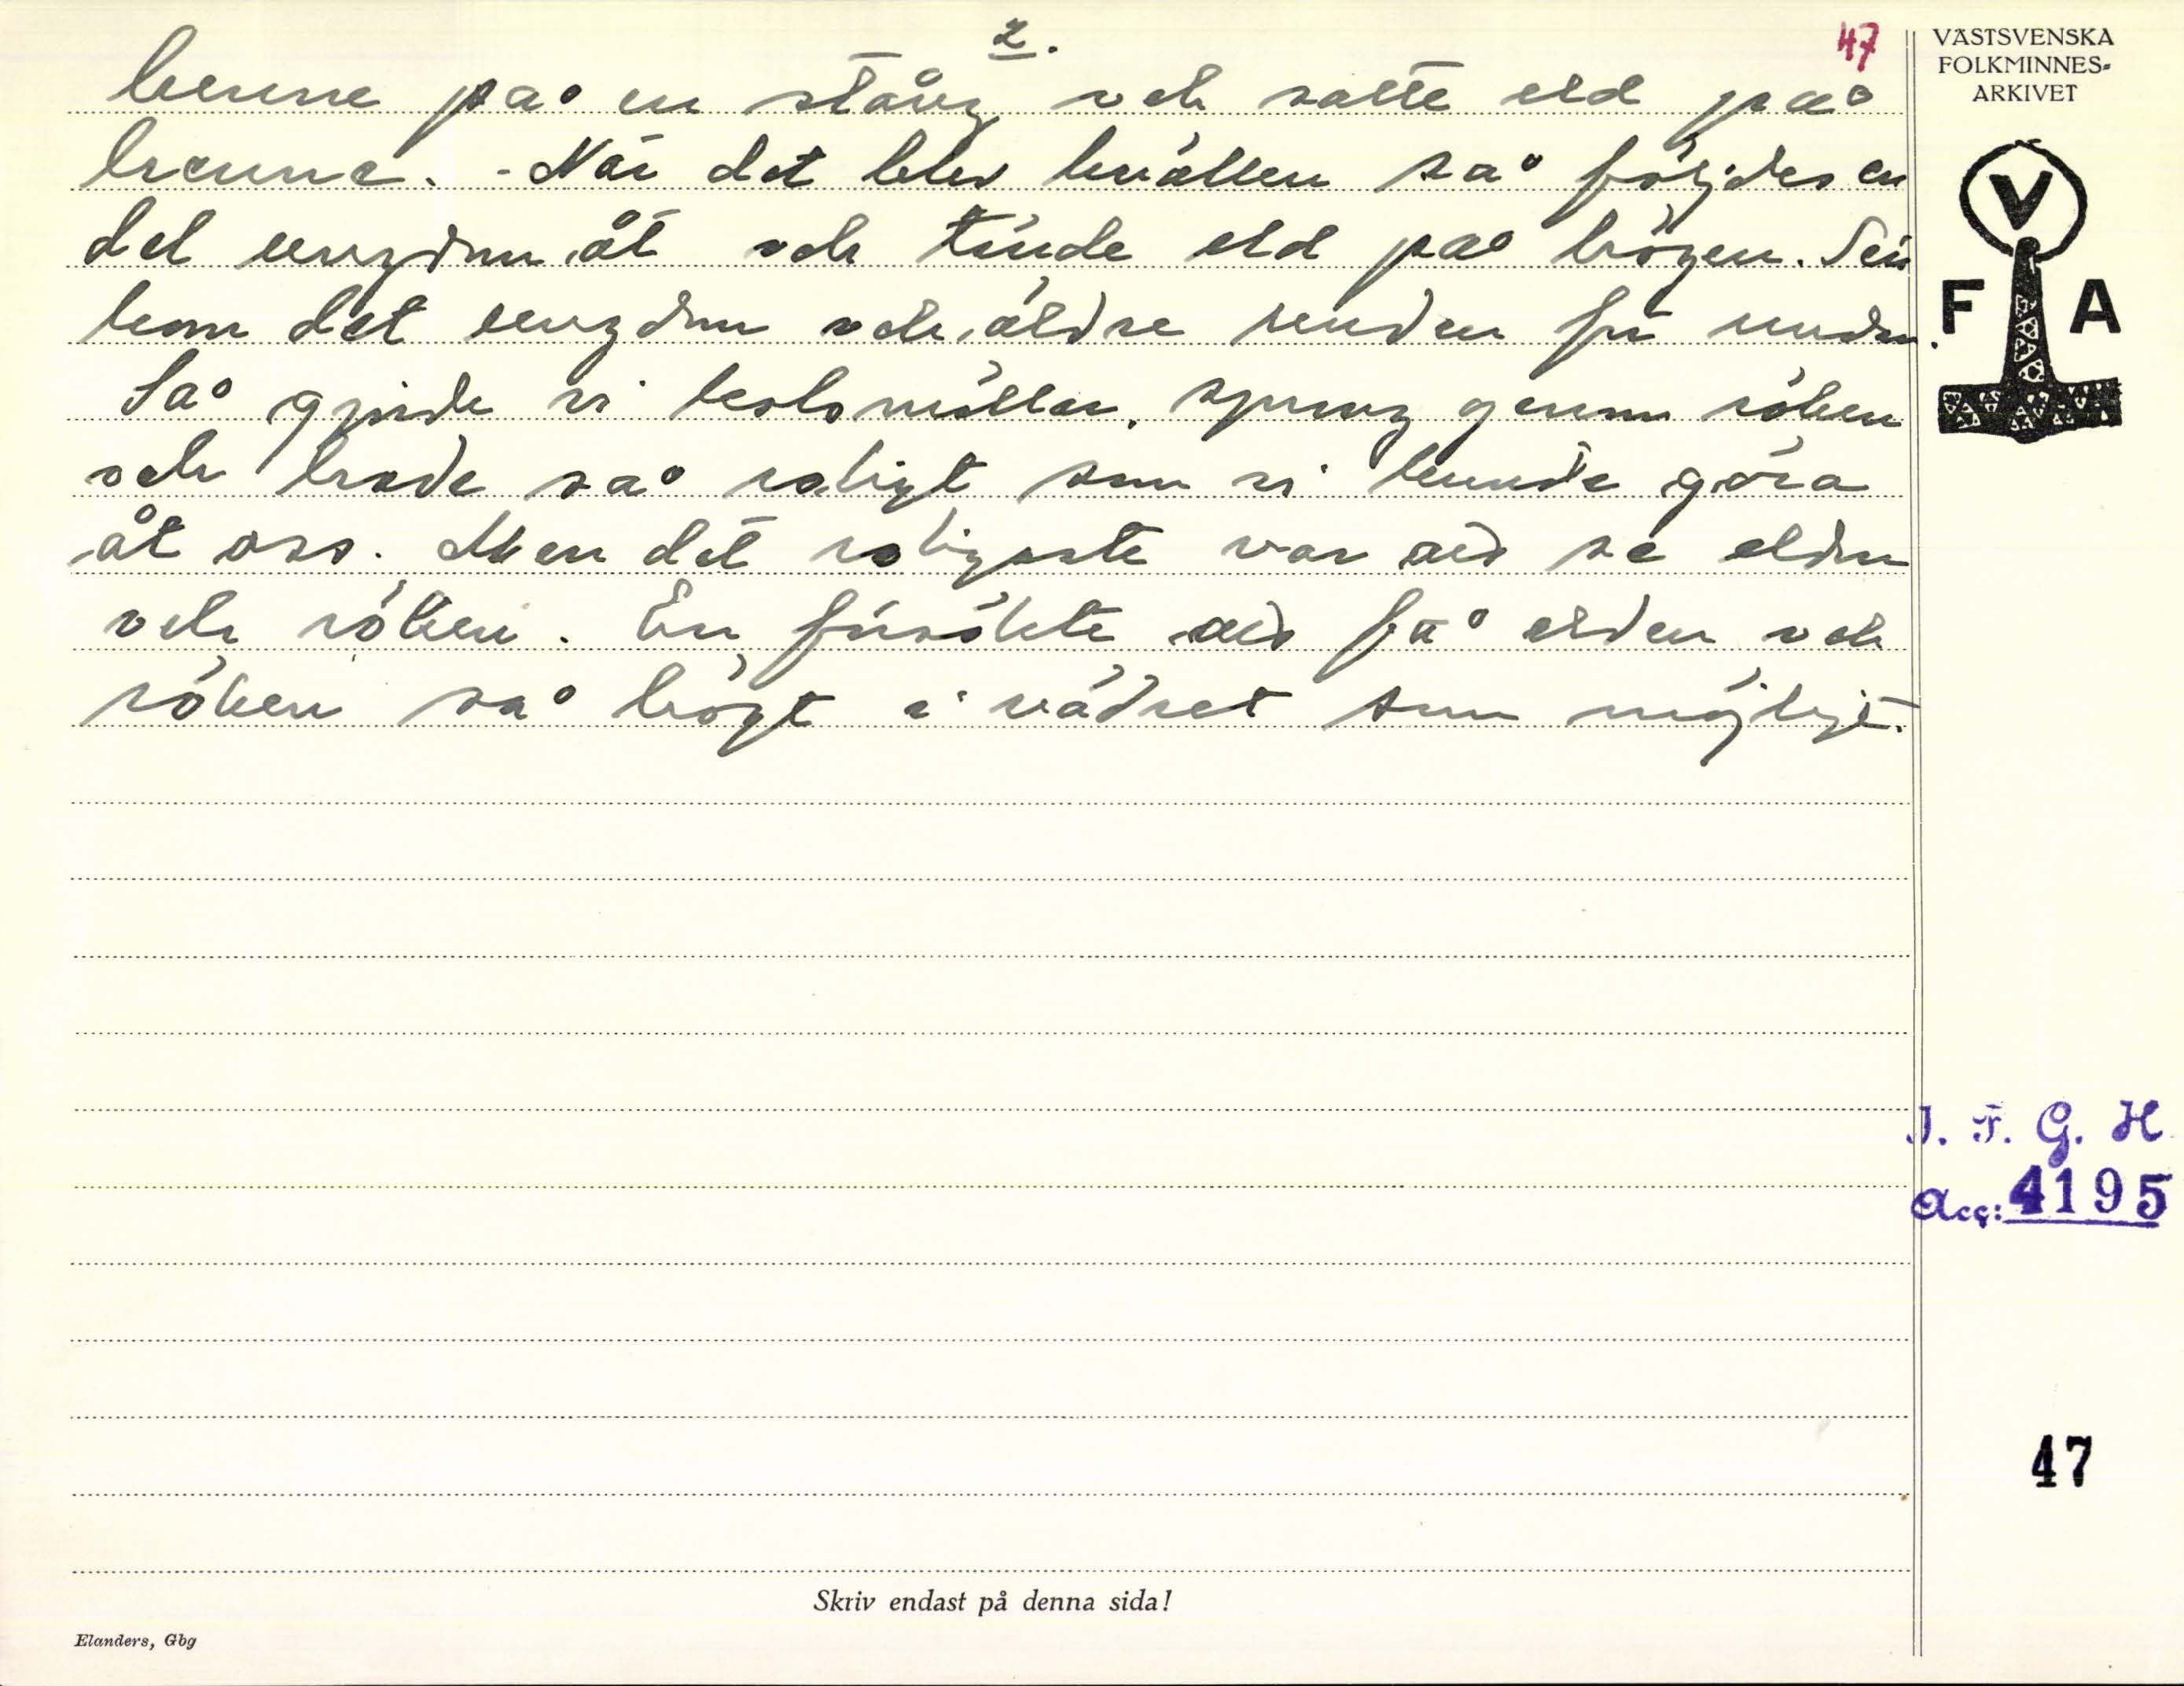 2.
47
henne på en stång och satte eld på
henne. - När det blev kvällen så följdes en
del ungdom åt och tände eld på högen. Sen
kom det ungdom och äldre undan för undan.
Så gjorde vi kolsvüller, sprang genom röken
och hade så roligt som vi kunde göra
åt oss. Men det roligaste var att se elden
och röken. En försökte att få elden och
röken så högt i vädret som möjligt.
VÄSTSVENSKA
FOLKMINNES-
ARKIVET
V
F A
I. F. G. H.
Acc: 4195
47
Skriv endast på denna sida!
Elanders, Gbg